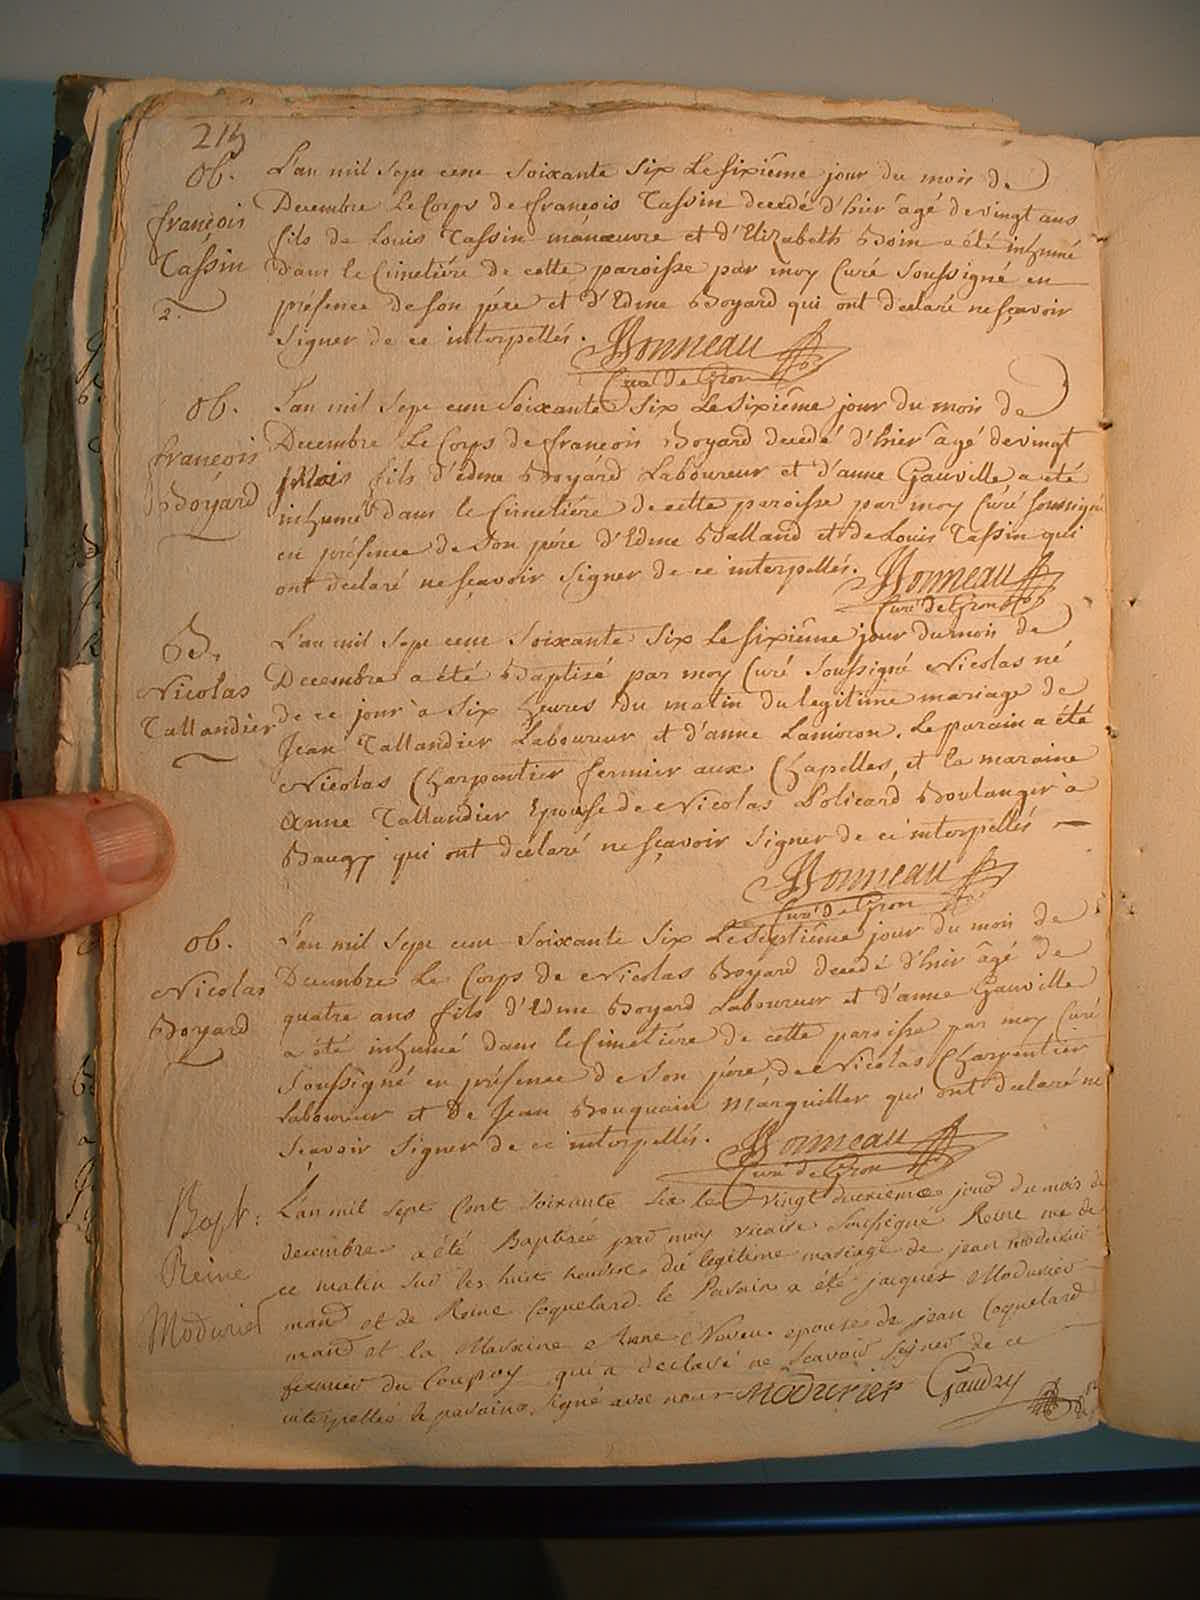 ob.
françois
Tassin
2.
L'an mil Sept cent Soixante Six Le sixiême jour du mois de
Decembre Le Corps de françois Tassin decedé d'hier âgé de vingt ans
fils de Louis Tassin manœuvre et d'Elizabeth Boin a été inhumé
dans le Cimetiére de cette paroisse par moy Curé Soussigné en
présence de son pére et d'Edme Boyard qui ont declaré ne sçavoir
Signer de ce interpellés. Bonneau
Curé de Gron
ob.
françois
Boyard
L'an mil Sept cent Soixante Six Le Sixiême jour du mois de
Decembre Le Corps de françois Boyard decedé d'hier âgé de vingt
Mois fils d'edme Boyard Laboureur et d'anne Gauville a été
inhumé dans le Cimetiére de cette paroisse par moy Curé soussigné
en présence de Son pére d'Edme Balland et de Louis Tassin qui
ont declaré ne sçavoir signer de ce interpellés. Bonneau
Curé de Gron
B.
Nicolas
Tallandier
L'an mil Sept cent Soixante Six Le sixiême jour du mois de
Decembre a été Baptisé par moy Curé Soussigné Nicolas né
de ce jour à Six heures du matin du legitime mariage de
Jean Tallandier Laboureur et d'anne Lamoron. Le parain a été
Nicolas Charpentier fermier aux Chapelles, et la maraine
Anne Tallandier Epouse de Nicolas Policard Boulanger à
Baugy qui ont déclaré ne sçavoir Signer de ce interpellés
Bonneau
Curé de Gron
ob.
Nicolas
Boyard
L'an mil Sept cent Soixante Six Le Septiême jour du mois de
Decembre Le Corps de Nicolas Boyard decedé d'hier âgé de
quatre ans fils d'Edme Boyard Laboureur et d'anne Gauville
a été inhumé dans le Cimetiére de cette paroisse par moy Curé
Soussigné en présence de Son pére, de Nicolas Charpentier
Laboureur et De Jean Bouquain Marguiller qui ont declaré ne
Sçavoir Signer de ce interpellés. Bonneau
Curé de Gron
Bapt:
Reine
Modurier
L'an mil Sept Cent Soixante Six le Vingt deuxieme jour du mois de
decembre a été Baptisée par moy vicaire Soussigné Reine née de
ce matin Sur les huit heures du legitime mariage de jean modurier
man et de Reine Coquelard. le Parain a été jacques Modurier
man et la Maraine Anne Neveu epouse de jean Coquelard
fermier du Coupoy qui a declaré ne Scavoir Signer de ce
interpellée le parain Signé avec nous Modurier Gaudry